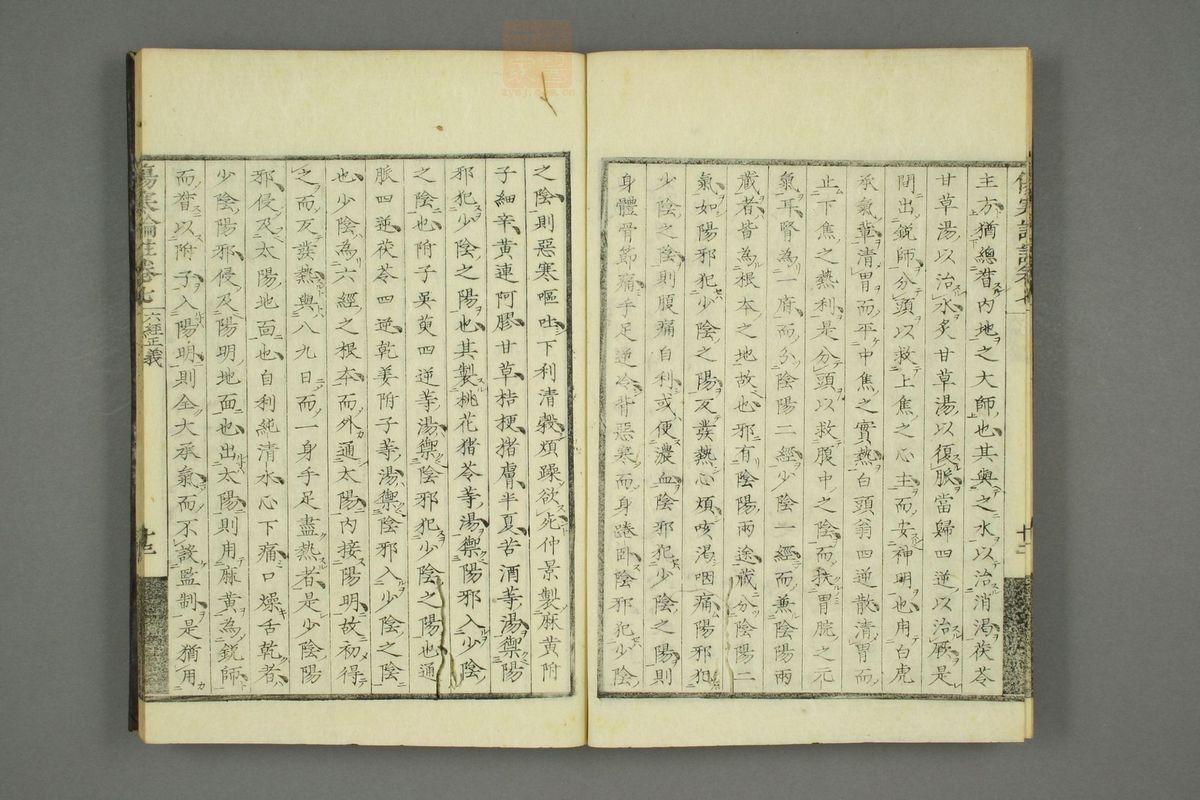 主方猶總督內地之大師也其與之水以治消渴茯苓
甘草湯以治水炙甘草湯以復脈當歸四逆以治厥是
間出銳師分頭以救上焦之心主而安神明也用白虎
承氣輩清胃而平中焦之實熱白頭翁四逆散清胃而
止下焦之熱利是分頭以救腹中之陰而扶胃脘之元
氣耳腎為一府而分陰陽二經少陰一經而兼陰陽兩
藏者皆為根本之地故也邪有陰陽兩途藏分陰陽二
氣如陽邪犯少陰之陽反發熱心煩咳渴咽痛陽邪犯
少陰之陰則腹痛自利或便濃血陰邪犯少陰之陽則
身體骨節痛手足逆冷背惡寒而身踡卧陰邪犯少陰
之陰則惡寒嘔吐下利清穀煩躁欲死仲景製麻黃附
子細辛黃連阿膠甘草桔梗猪膚半夏苦酒等湯禦陽
邪犯少陰之陽也其製桃花猪苓等湯禦陽邪入少陰
之陰也附子吳萸四逆等湯禦陰邪犯少陰之陽也通
脈四逆茯苓四逆乾姜附子等湯禦陰邪入少陰之陰
也少陰為六經之根本而外通太陽內接陽明故初得
之而反發熱與八九日而一身手足盡熱者是少陰陽
邪侵及太陽地面也自利純清水心下痛口燥舌乾者
少陰陽邪侵及陽明地面也出太陽則用麻黃為銳師
而督以附子入陽明則全大承氣而不設監制是猶用
傷寒論註卷七
六經正義
廿三